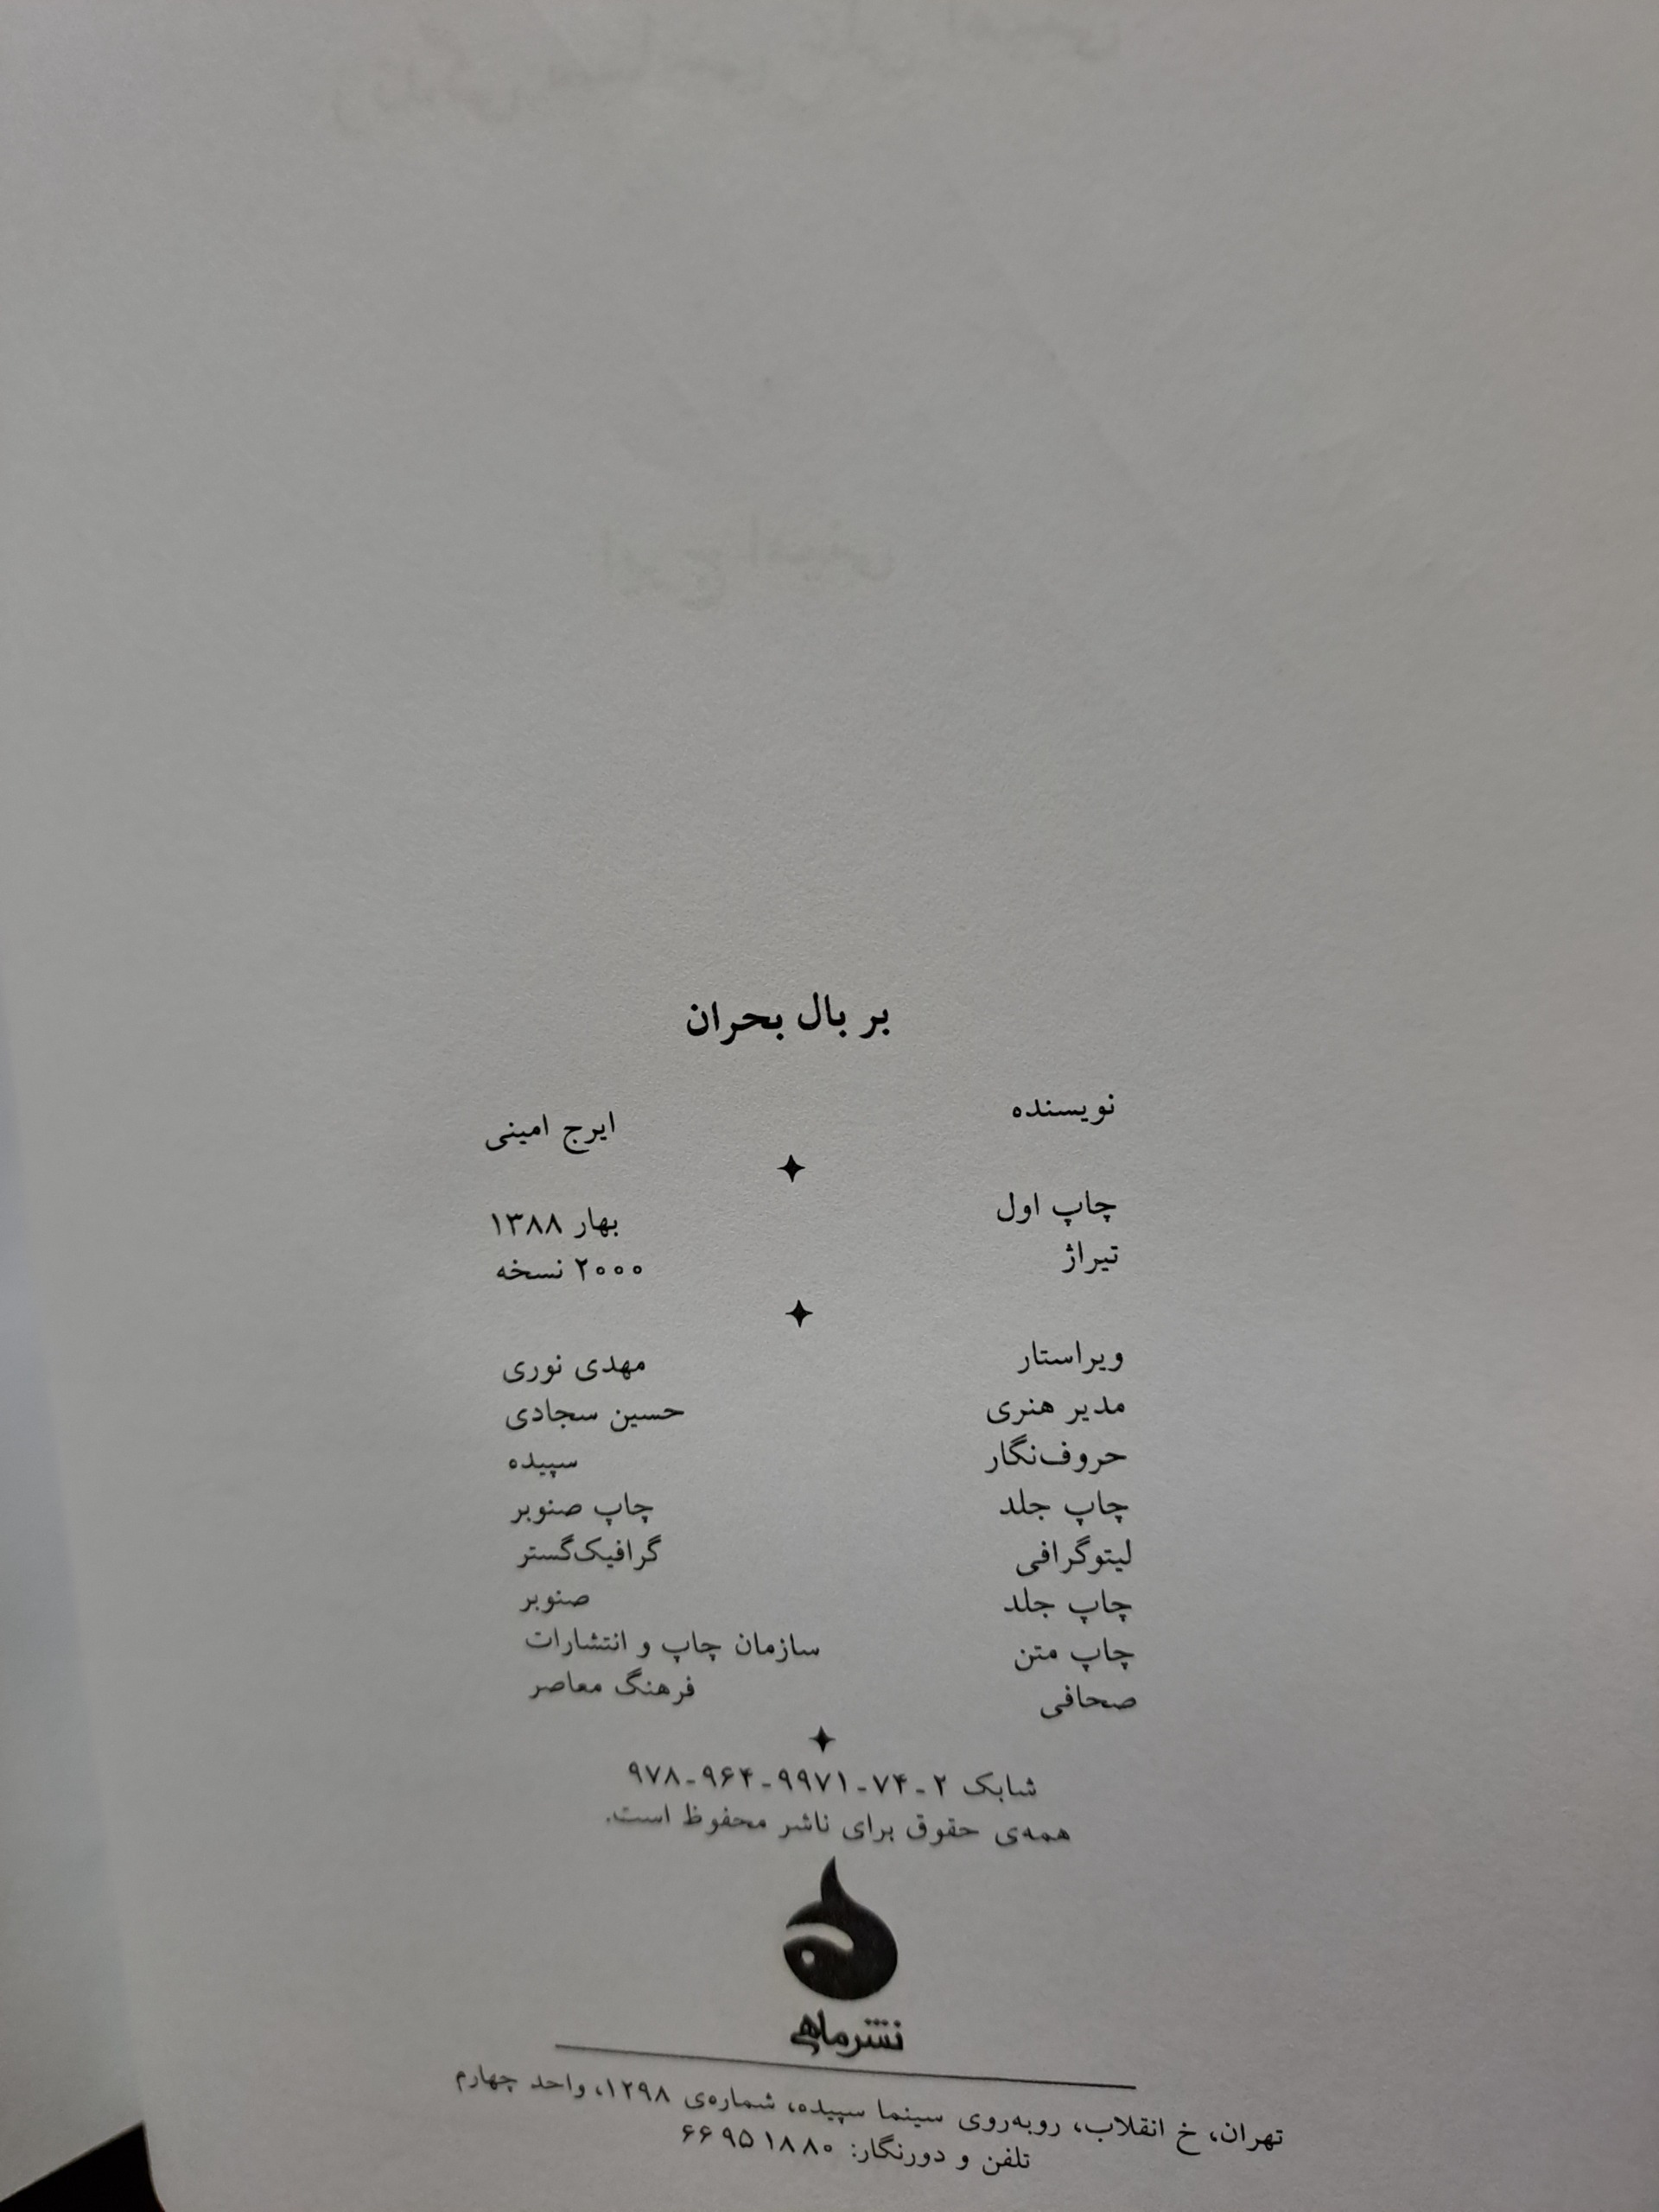 بر بال بحران
نویسنده ایرج امینی
چاپ اول بهار ۱۳۸۸
تیراژ ۲۰۰۰ نسخه
ویراستار مهدی نوری
مدیر هنری حسین سجادی
حروف‌نگار سپیده
چاپ جلد چاپ صنوبر
لیتوگرافی گرافیک‌گستر
چاپ جلد صنوبر
چاپ متن سازمان چاپ و انتشارات
صحافی فرهنگ معاصر
شابک ۲-۷۴-۹۹۷۱-۹۶۴-۹۷۸
همه‌ی حقوق برای ناشر محفوظ است.
نشرماهی
تهران، خ انقلاب، روبه‌روی سینما سپیده، شماره‌ی ۱۲۹۸، واحد چهارم
تلفن و دورنگار: ۶۶۹۵۱۸۸۰